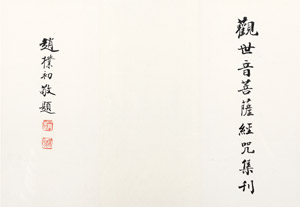 觀世音菩薩經咒集刊
趙樸初敬題